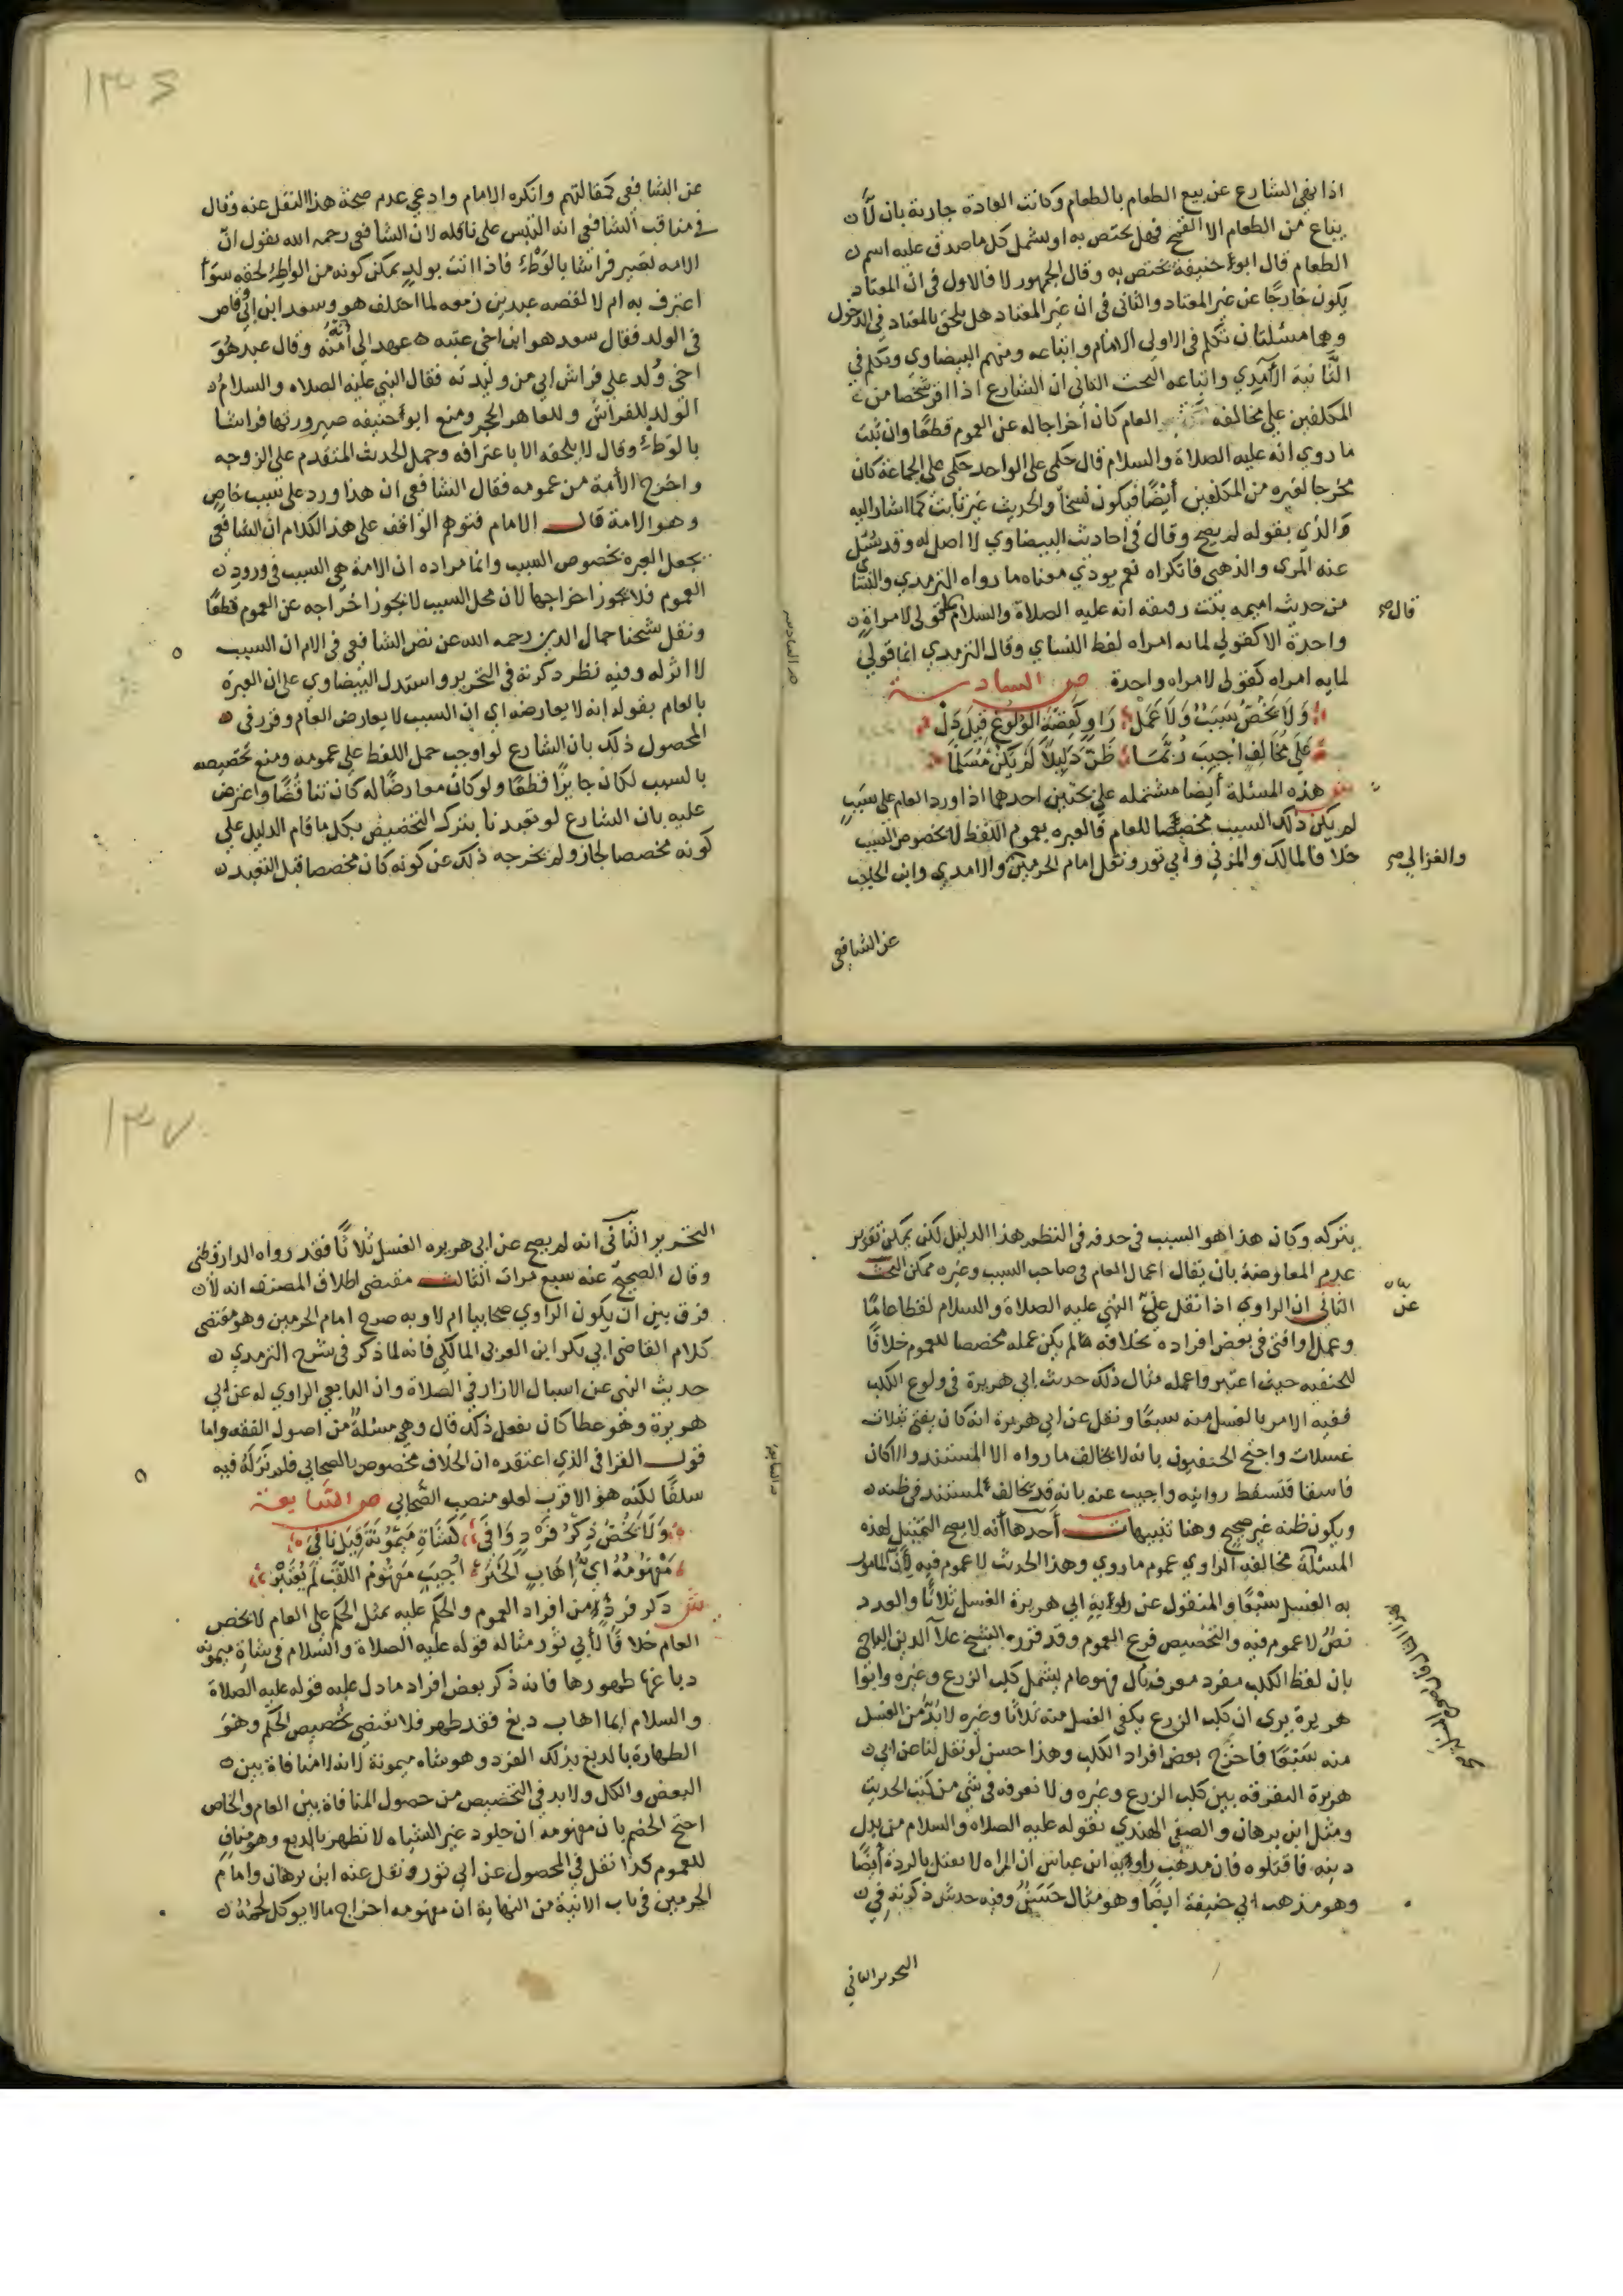 اذا نهى الشارع عن بيع الطعام بالطعام وكانت العادة جارية بان لا
يباع من الطعام الا القمح فهل يختص به او يشمل كل ما صدق عليه اسم
الطعام قال ابو حنيفة يختص به وقال الجمهور لا فالاول في ان المعتاد
يكون خارجًا عن غير المعتاد والثاني في ان غير المعتاد هل يلحق بالمعتاد في الدخول
وهما مسئلتان تكلم في الاولى الامام واتباعه ومنهم البيضاوي وتكلم في
الثانية الآمدي واتباعه البحث الثاني ان الشارع اذا اقر شخصا من
المكلفين على مخالفة العام كان اخراجا له عن العموم قطعًا وان ثبت
ما روي انه عليه الصلاة والسلام قال حكمى على الواحد حكمى على الجماعة كان
مخرجا لغيره من المكلفين أيضًا فيكون نسخًا والحديث غير ثابت كما اشار اليه
والذي بقوله لم يصح وقال في احاديث البيضاوي لا اصل له وقد سئل
عنه المزى والذهبى فانكراه نعم يودي معناه ما رواه الترمذي والنسائي
من حديث اميمه بنت رقيقه انه عليه الصلاة والسلام قولى لامراة
قال صح
واحدة الا كقولي لمايه امراه لفظ النساي وقال الترمذي انما قولي
لمايه امراه كقولى لامراه واحدة ص السادسة
وَلَا يَخُصُّ سَبَبٌ وَلَا عَمَلْ رَاوٍ كَقِصَّةِ الْوُلُوغِ قِيلَ دَلْ
عَلَى مُخَالِفٍ اُجِيبَ رُبَّمَا ظَنَّ دَلِيلًا لَمْ يَكُنْ مُسَلَّمَا
ش هذه المسئلة أيضا مشتمله على بحثين احدهما اذا ورد العام على سَبَبٍ
لم يكن ذلك السبب مخصصًا للعام فالعبره بعموم اللفظ لا بخصوص السبب
خلافا لمالك والمزني وابي ثور ونقل امام الحرمين والامدي وابن الحاجب
والغزالي صح
عن الشافعي
١٣٦
عن الشافعي كمقالتهم وانكره الامام وادعى عدم صحة هذا النقل عنه وقال
في مناقب الشافعي انه التبس على ناقله لان الشافعي رحمه الله يقول انّ
الامه تصير فراشا بالوَطْئ فاذا اتت بولدٍ يمكن كونه من الواطئ لحقه سوآ
اعترف به ام لا لقصه عبد بن زمعه لما اختلف هو وسعد ابن ابي وقاص
في الولد فقال سعد هو ابن اخي عتبه عهد إلي أنَّهُ وقال عبد هُوَ
اخى وُلد على فراش ابي من وليدته فقال النبي عليه الصلاه والسلام
الولد للفراش وللعاهر الحجر ومنع ابو حنيفه صيرورتها فراشا
بالوَطْئ وقال لا يلحقه الا باعترافه وحمل الحديث المتقدم على الزوجه
واخرج الأمة من عمومه فقال الشافعي ان هذا ورد على سبب خاص
وهو الامة قال الامام فتوهم الواقف على هذا الكلام ان الشافعي
يجعل العبره بخصوص السبب وانما مراده ان الامة هي السبب في ورود
العموم فلا يجوز اخراجها لان محل السبب لا يجوز اخراجه عن العموم قطعًا
ونقل شيخنا جمال الدين رحمه الله عن نص الشافعي في الام ان السبب
لا اثر له وفيه نظر ذكرته في التحرير واستدل البيضاوي على ان العبرة
بالعام بقوله انه لا يعارضه اي ان السبب لا يعارض العام وقرر في
المحصول ذلك بان الشارع لو اوجب حمل اللفظ على عمومه ومنع تخصيصه
بالسبب لكان جايزًا قطعًا ولو كان معارضًا له كان تناقضًا واعترض
عليه بان الشارع لو تعبدنا بترك التخصيص بكل ما قام الدليل على
كونه مخصصا لجاز ولم يخرجه ذلك عن كونه كان مخصصا قبل التعبد
بتركه وكان هذا هو السبب في حذفه في النظم هذا الدليل لكن يمكن تقرير
عدم المعارضة بان يقال اعمال العام في صاحب السبب وغيره ممكن البحث
الثاني ان الراوي اذا نقل عن النبي عليه الصلاة والسلام لفظا عامًا
عن
وعمل او افتى في بعض افراده بخلافه لم يكن عمله مخصصا للعموم خلافًا
للحنفيه حيث اعتبروا عمله مثال ذلك حديث ابي هريرة في ولوغ الكلب
ففيه الامر بالغسل منه سبعًا ونقل عن ابي هريرة انه كان يفتى بثلاث
غسلات واحتج الحنفيون بانه لا يخالف ما رواه الا لمستند والا كان
فاسقا فتسقط روايته واجيب عنه بانه قد يخالف لمستند في ظنه
ويكون ظنه غير صحيح وهنا تنبيهات أحدها أنه لا يصح التمثيل لهذه
المسئلة مخالفه الراوي عموم ما روي وهذا الحديث لا عموم فيه لأن المامور
به الغسل سبعًا والمنقول عن رواية ابي هريرة الغسل ثلاثًا والعدد
نصٌّ لا عموم فيه والتخصيص فرع العموم وقد قرره الشيخ علا الدين الباجي
بان لفظ الكلب مفرد معرف بال فهو عام يشمل كلب الزرع وغيره وابوا
هريرة يرى ان كلب الزرع يكفي الغسل منه ثلاثا وغيره لا بُدّ من الغسل
منه سَبْعًا فاخرَج بعض افراد الكلب وهذا حسن لو نقل لنا عن ابي
هريرة التفرقه بين كلب الزرع وغيره ولا نعرفه في شي من كتب الحديث
ومثل ابن برهان والصفى الهندي بقوله عليه الصلاه والسلام من بدل
دينه فاقتلوه فان مذهب راويه ابن عباس ان المراه لا تقتل بالردة أيضًا
وهو مذهب ابي حنيفة ايضًا وهو مثال حَسَنٌ وفيه حديث ذكرته في
التحرير الثاني
١٣٧
التحرير الثاني انه لم يصح عن ابي هريره الغسل ثلاثًا فقد رواه الدارقطني
وقال الصحيح عنه سبع مرات الثالث مقتضى اطلاق المصنف انه لا
فرق بين ان يكون الراوي صحابيا ام لا وبه صرح امام الحرمين وهو مقتضى
كلام القاضي ابي بكر ابن العربي المالكي فانه لما ذكر في شرح الترمذي
حديث النهي عن اسبال الازار في الصلاة وان التابعي الراوي له عن ابي
هريرة وهو عطا كان يفعل ذلك قال وهي مسئلةٌ من اصول الفقه واما
قول القرافي الذي اعتقده ان الخلاف مخصوص بالصحابي فلم نَرَ لَهُ فيه
سلفًا لكنه هو الاقرب لعلو منصب الصّحابي ص السَّابِعة
وَلَا يَخُصُّ ذِكْرُ فَرْدٍ وَافَى كَشَاةِ مَيْمُونَةَ قِيلَ نَافَى
مَفْهُومُهُ أيُّ إِهَابٍ الْخَبَرْ أُجِيبَ مَفْهُومُ اللَّقَبْ لَمْ يُعْتَبَرْ
ش ذكر فردٍ من افراد العموم والحكم عليه بمثل الحكم على العام لا يخص
العام خلافًا لأبي ثَور مثاله قوله عليه الصلاة والسّلام في شاةِ ميمونه
دباغها طهورها فانه ذكر بعض افراد ما دل عليه قوله عليه الصلاة
والسلام ايما اهاب دبغ فقد طهر فلا يقتضي تخصيص الحكم وهُوَ
الطهارة بالدبغ بذلك الفرد وهو شاه ميمونة لانه لا منافاة بين
البعض والكل ولا بد في التخصيص من حصول المنافاة بين العام والخاص
احتج الخصم بان مفهومه ان جلود غير الشياه لا تطهر بالدبغ وهو منافٍ
للعموم كذا نقل في المحصول عن ابي ثور ونقل عنه ابن برهان وامام
الحرمين في باب الانية من النهاية ان مفهومه اخراج ما لا يوكل لحمُهُ